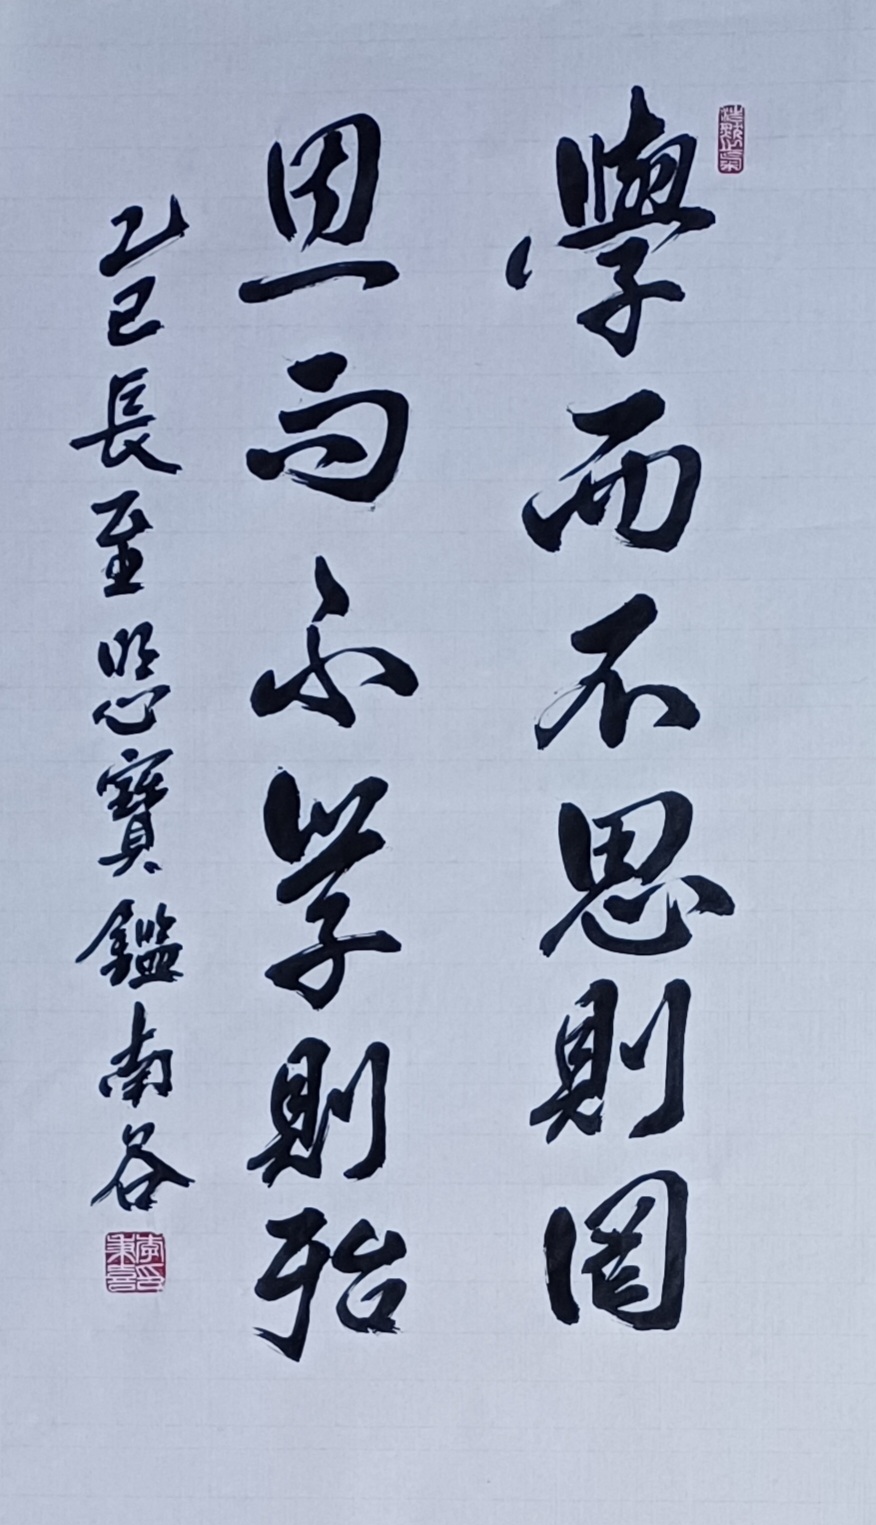 學而不思則罔
思而不學則殆
乙巳長至明心寶鑑南谷